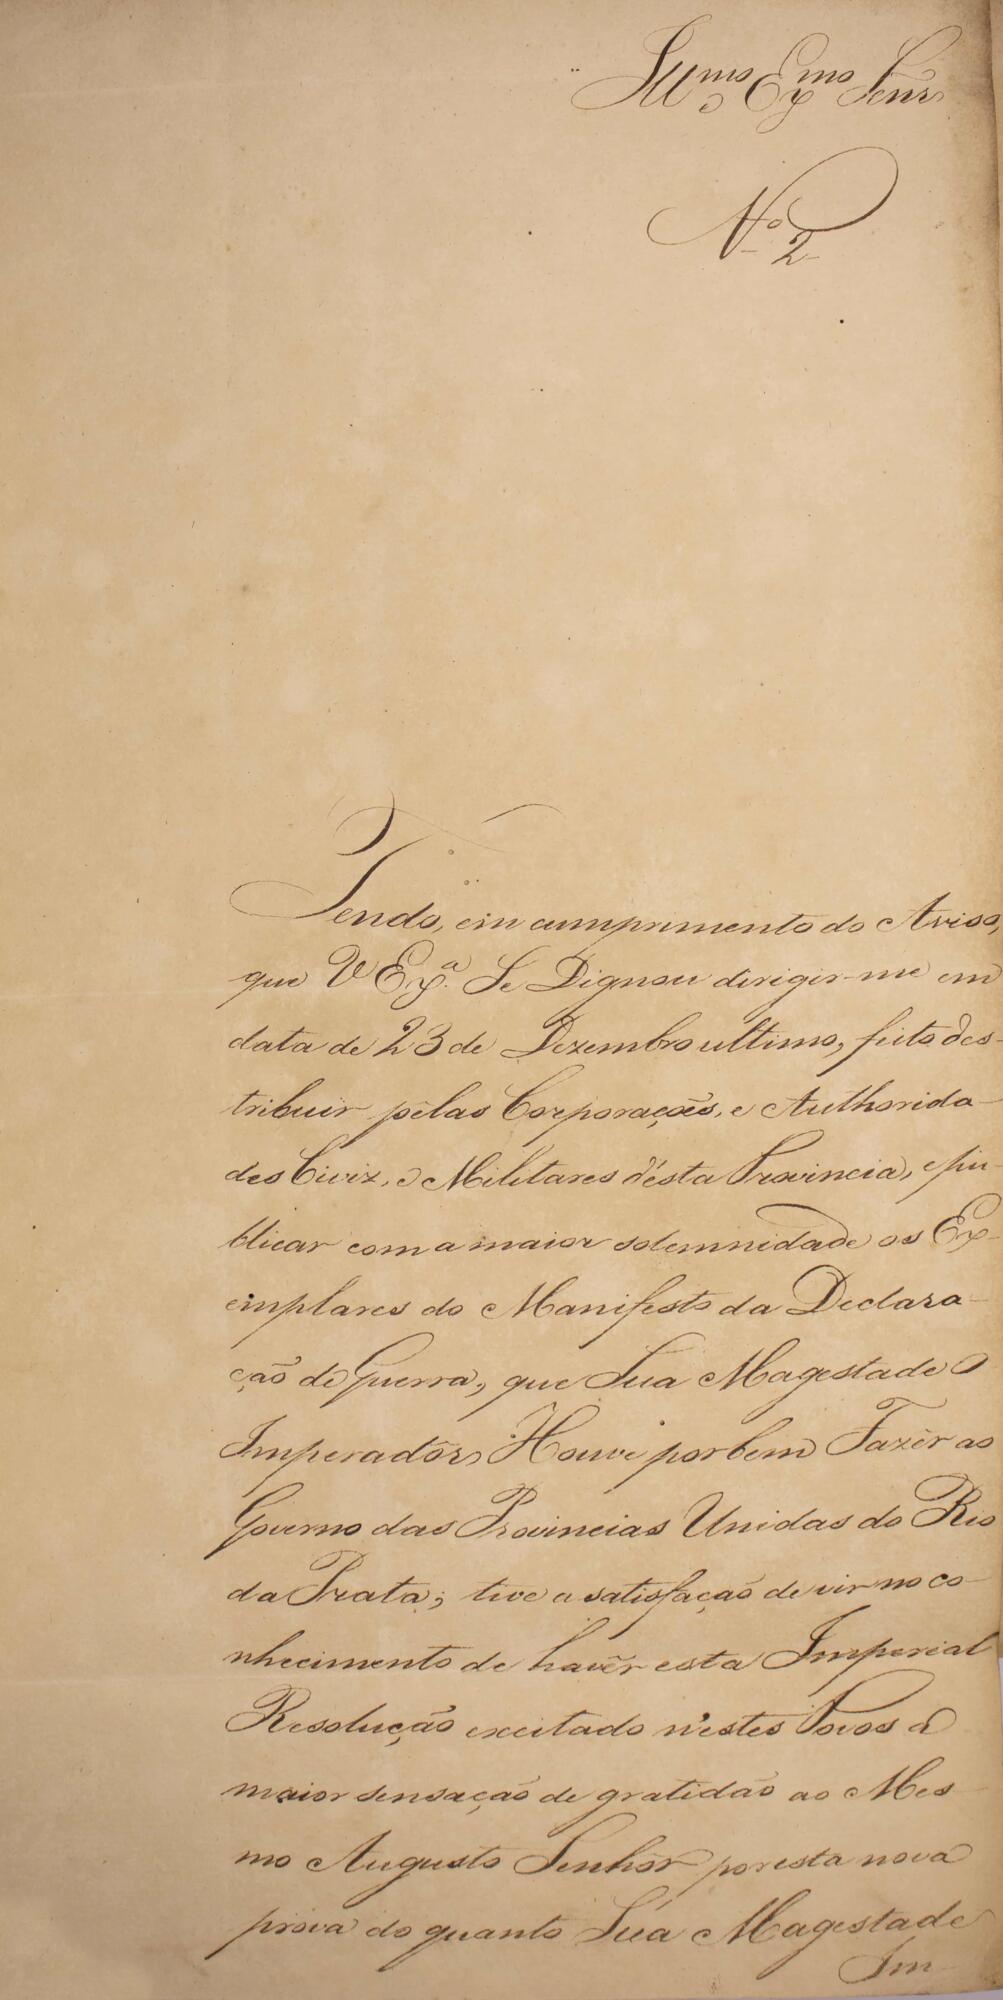 Illmo Exmo Senr
No 2
Tendo, em cumprimento do Aviso,
que V Exa. Se Dignou dirigir-me em
data de 23 de Dezembro ultimo, feito des-
tribuir pêlas Corporações, e Authorida-
des Civiz, e Militares d'ésta Provincia, e pu-
blicar com a maior solemnidade os Ex-
emplares do Manifesto da Declara-
ção de Guerra, que Sua Magestade O
Imperadôr Houve por bem Fazêr ao
Governo das Provincias Unidas do Rio
da Prata; tive a satisfação de vir no co-
nhecimento de havêr esta Imperial
Resolução excitado n'estes Povos a
maior sensação de gratidão ao Mes-
mo Augusto Senhôr por esta nova
prova do quanto Súa Magestade
Im-